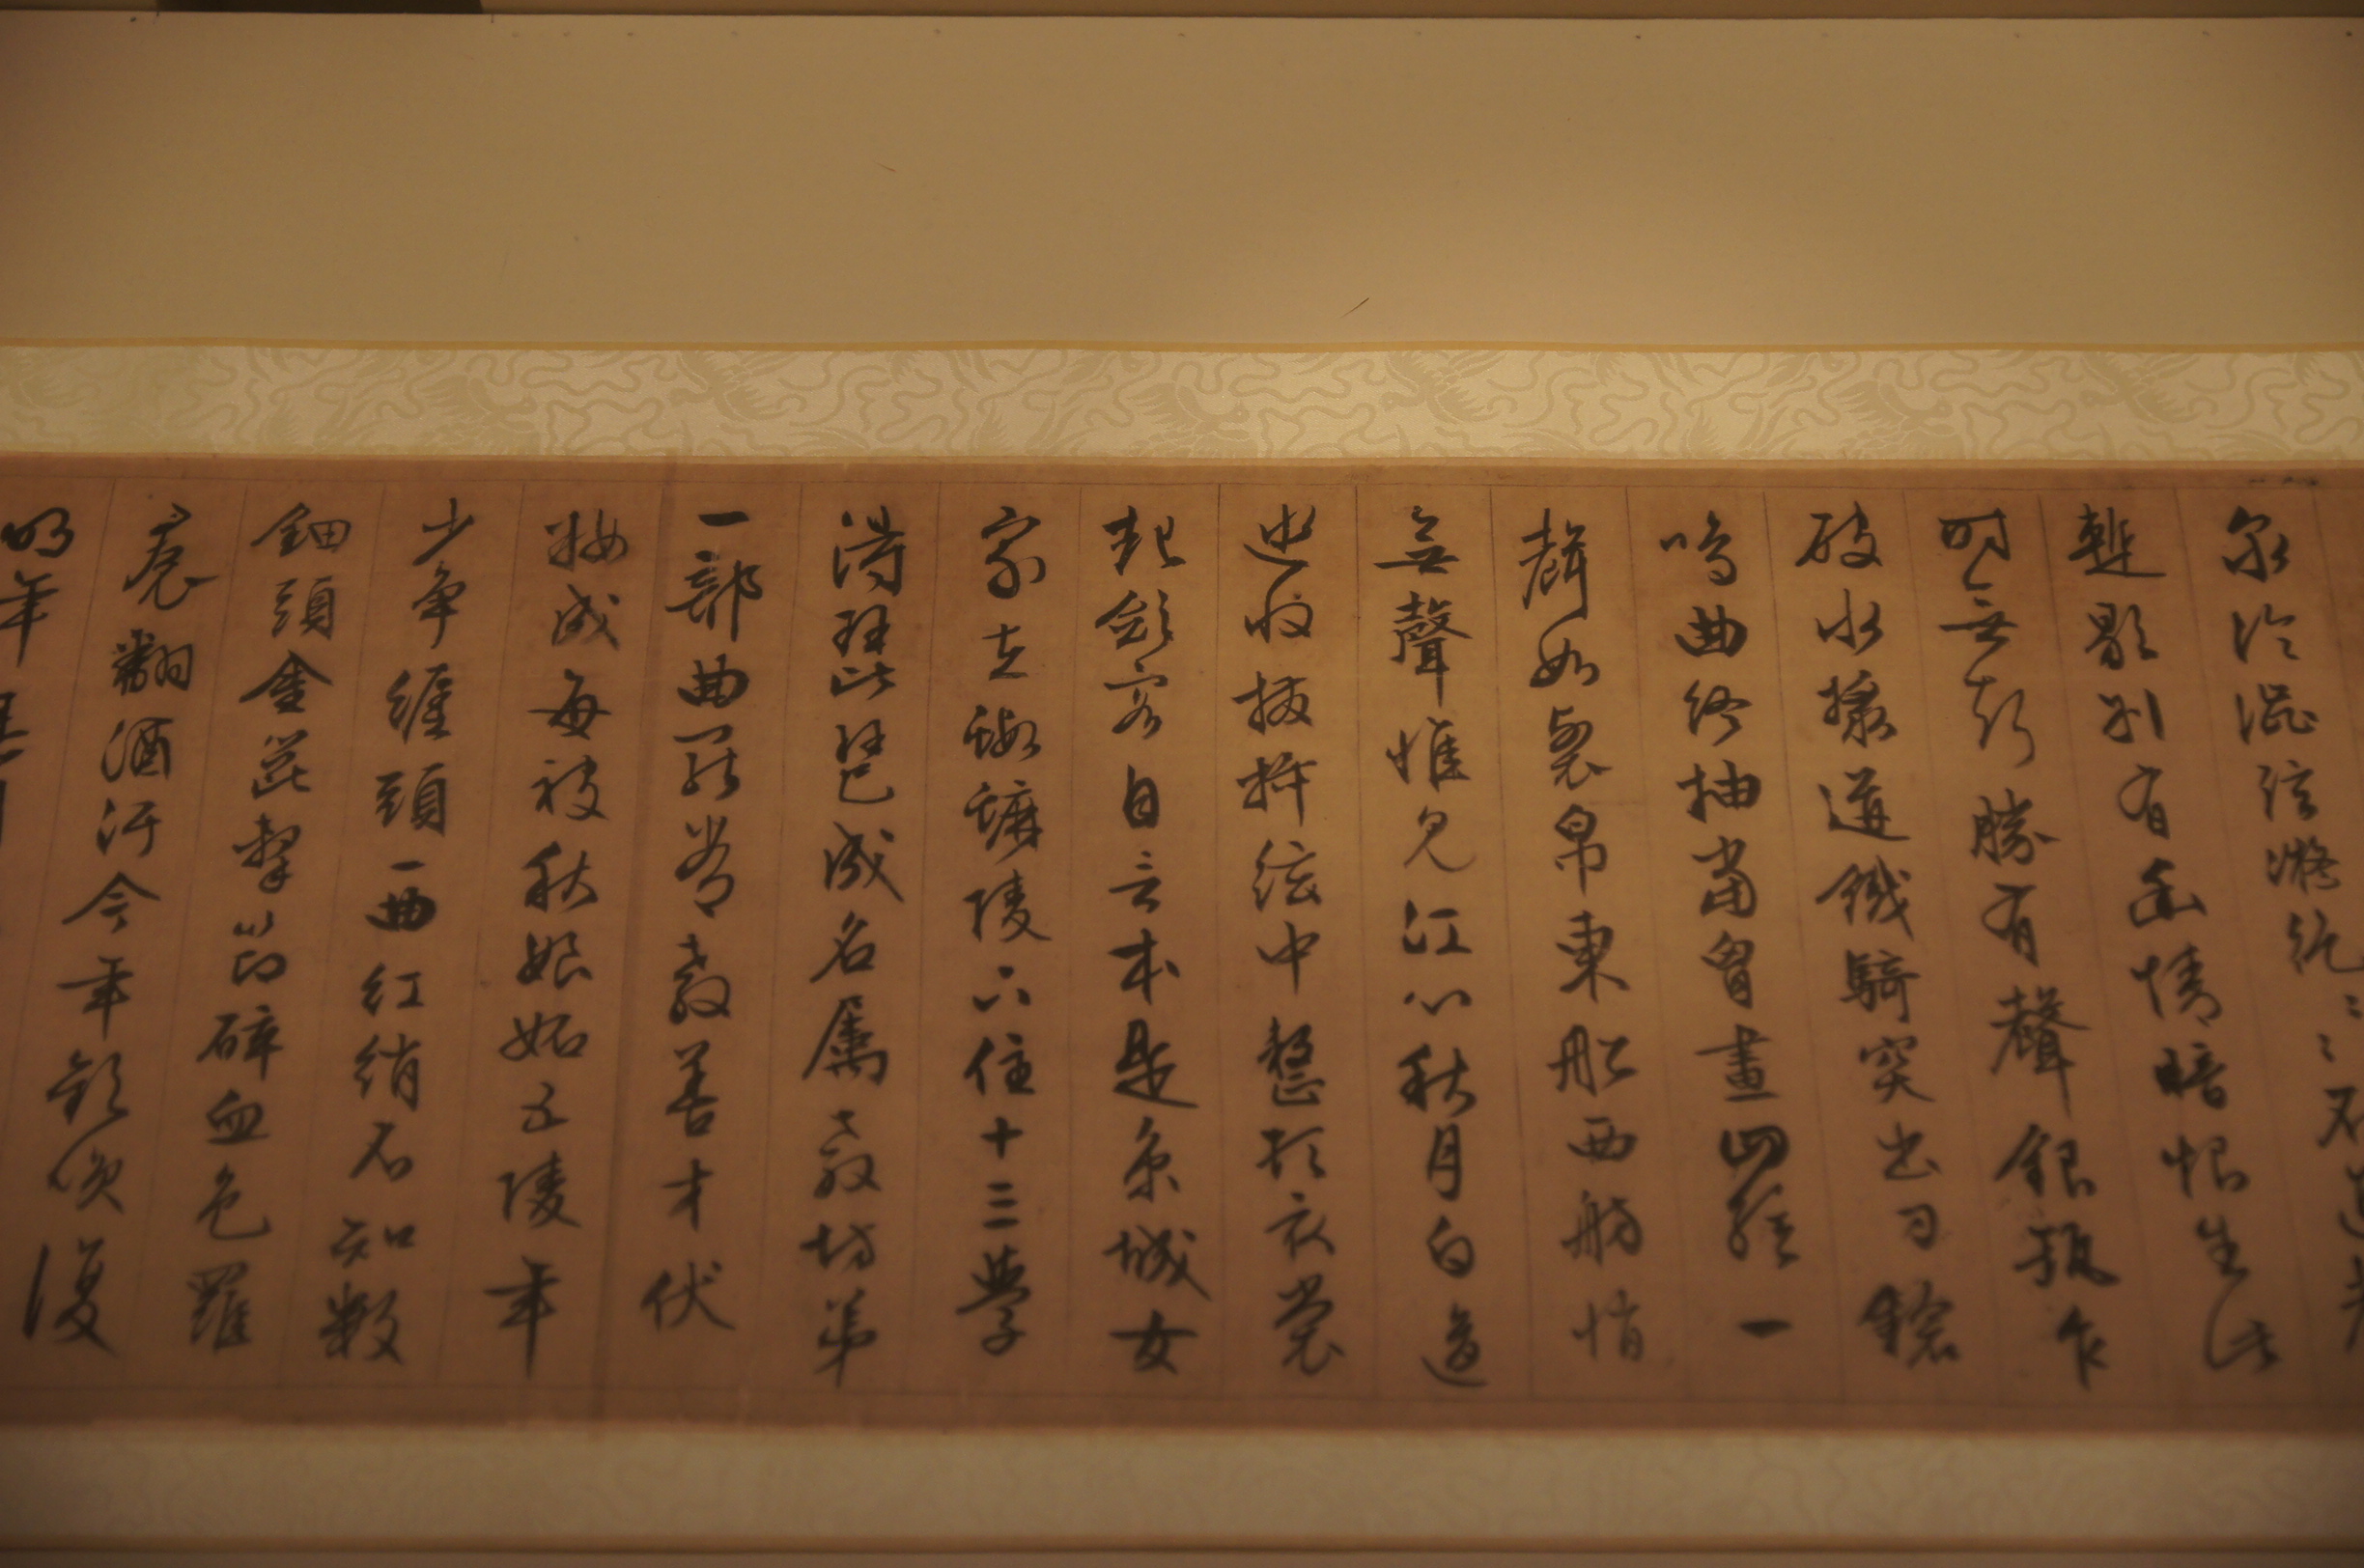 泉冷澀弦凝絕〻〻不通
暫歇別有幽情暗恨生此
時無聲勝有聲銀瓶乍
破水漿迸鐵騎突出刀鎗
鳴曲終抽當胷畫四絃一
聲如裂帛東船西舫悄
無聲惟見江心秋月白逡
巡收撥插絃中整頓衣裳
起歛容自言本是京城女
家在蝦蟆陵下住十三學
得琵琶成名屬教坊第
一部曲罷常教善才伏
粧成每被秋娘妬五陵年
少爭纏頭一曲紅綃不知數
鈿頭金篦擊節碎血色羅
裠翻酒汙今年歡笑復
明年